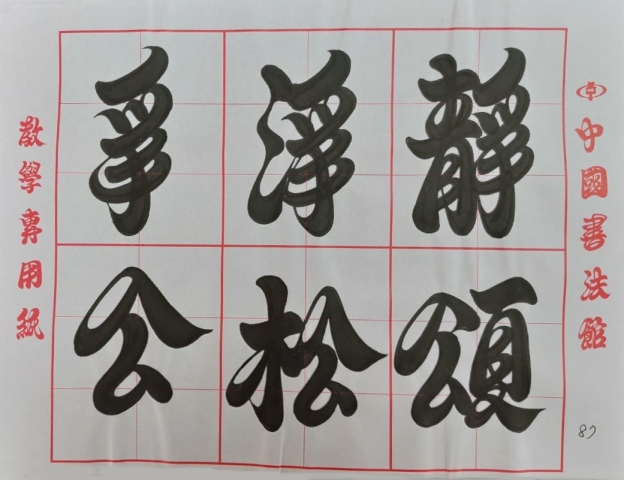 爭淨靜
公松頌
中國書法館
教學專用紙
87